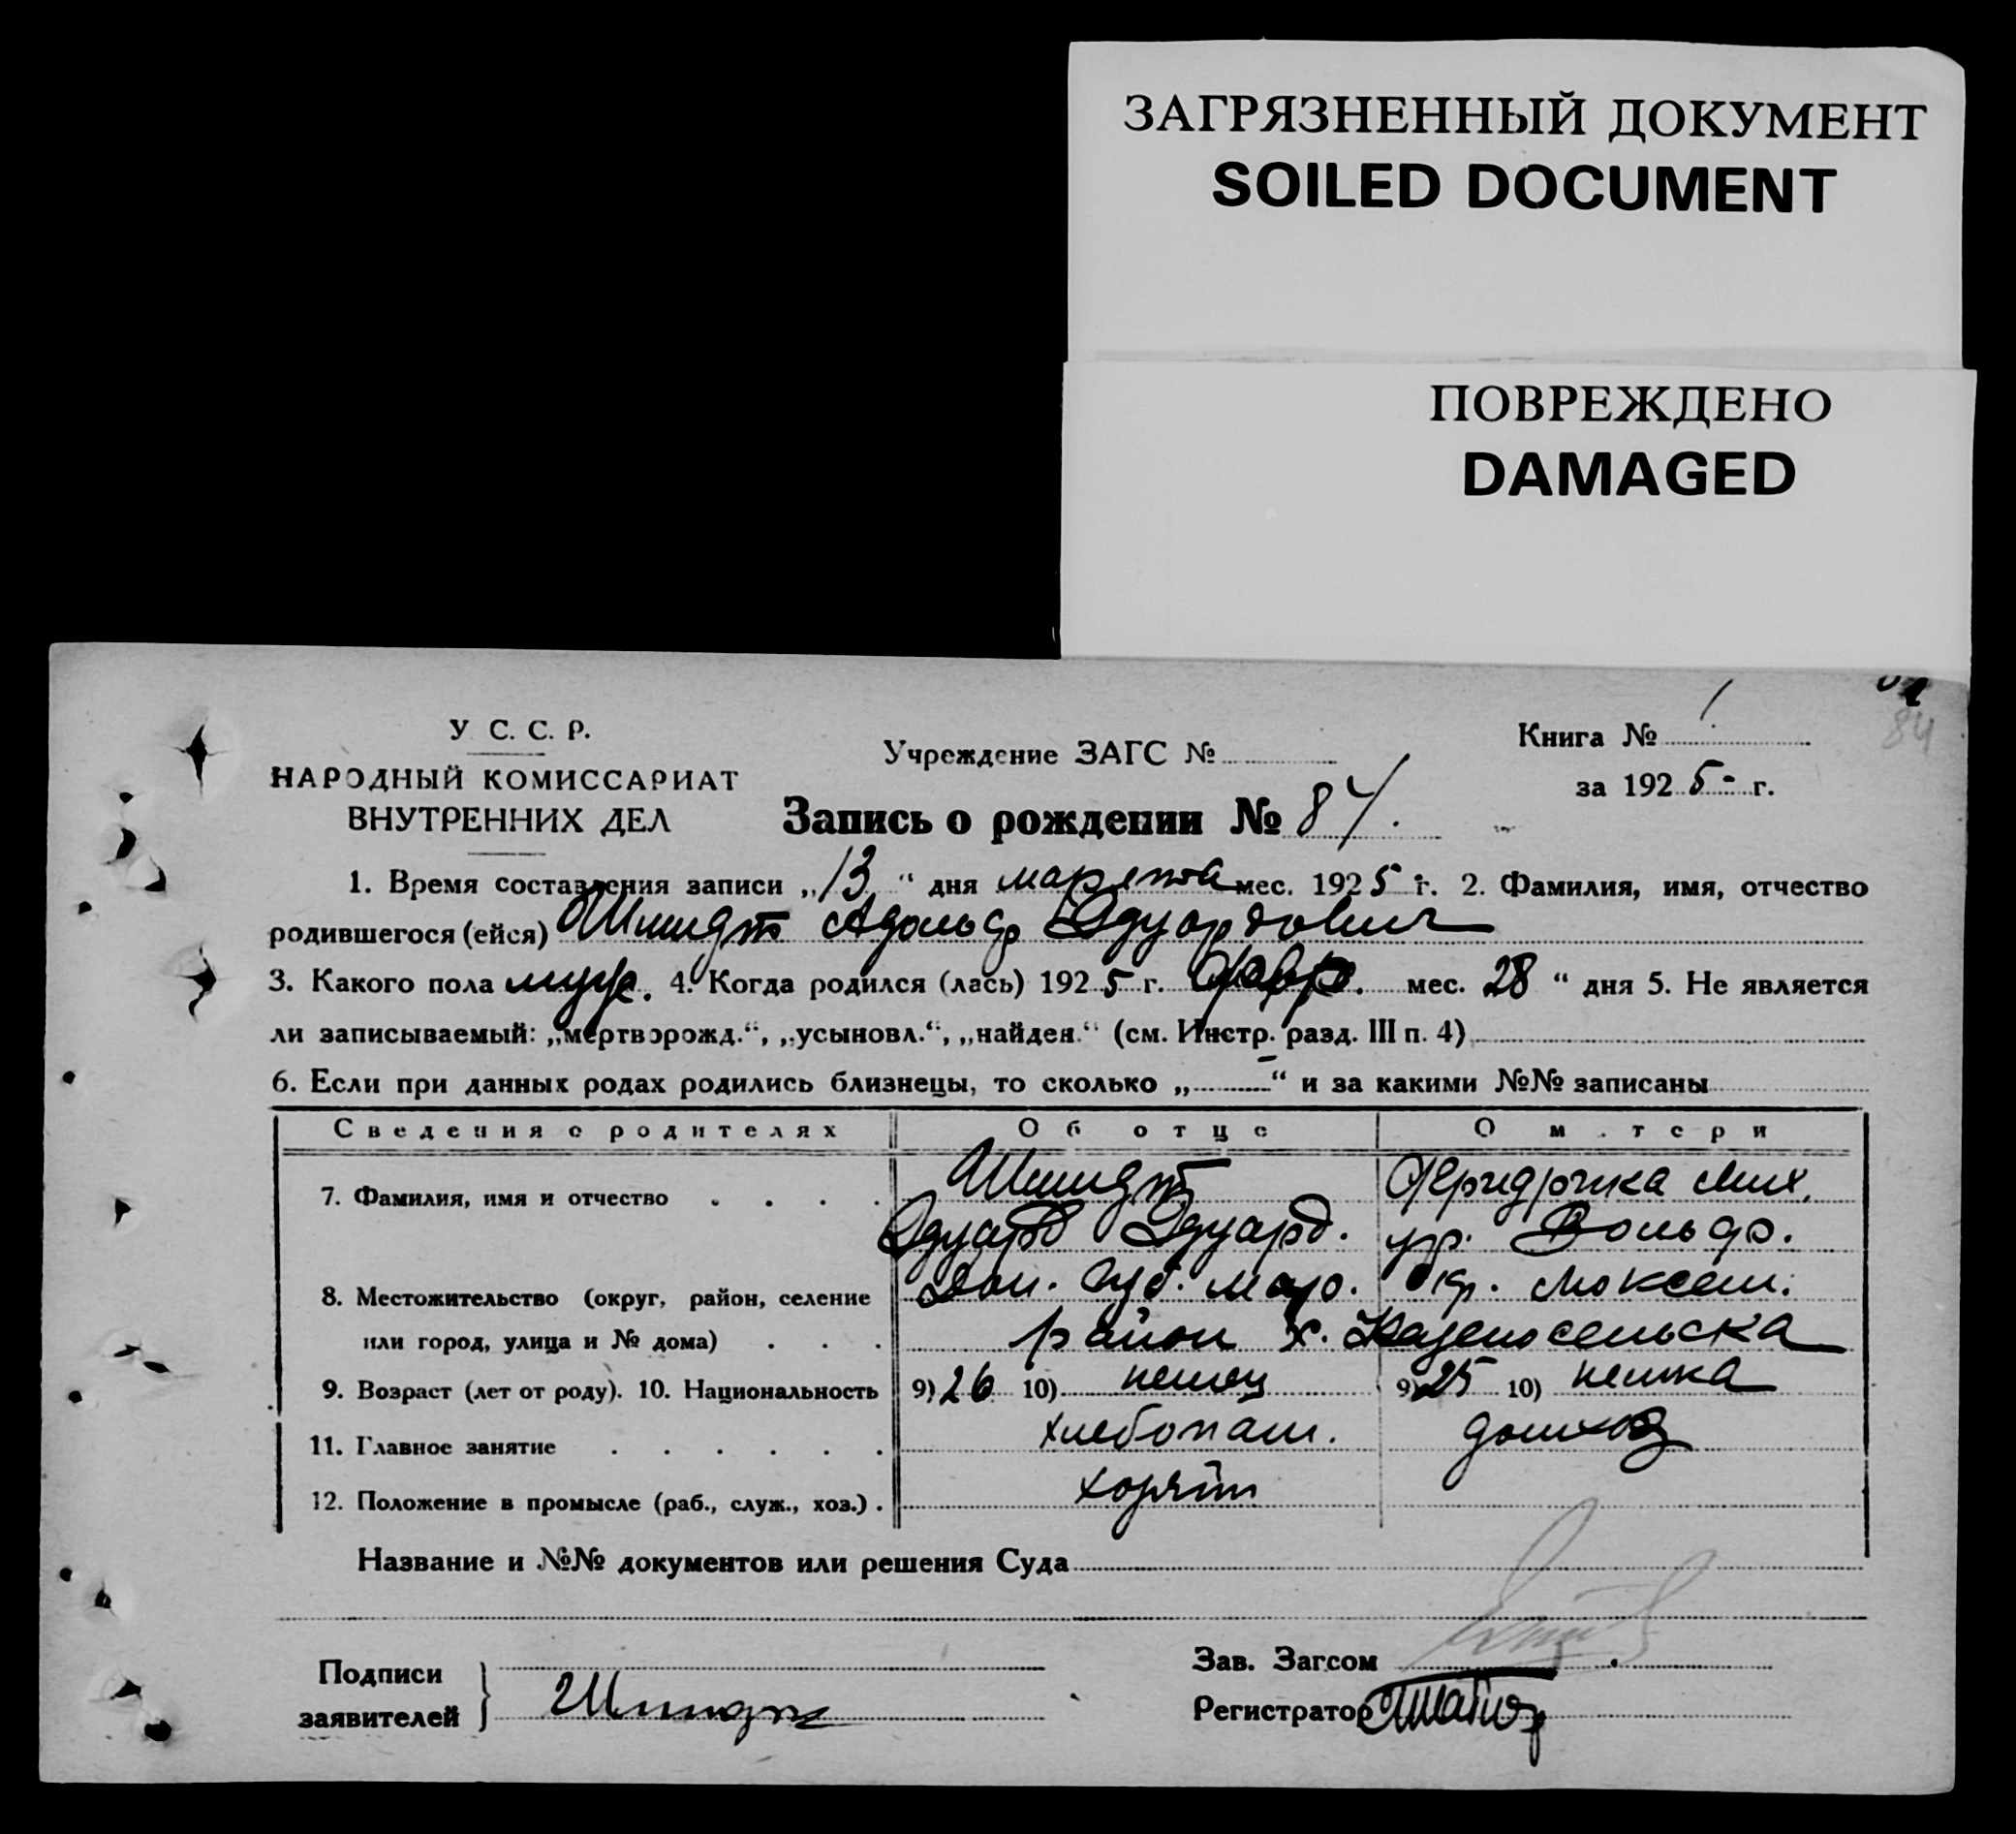 ЗАГРЯЗНЕННЫЙ ДОКУМЕНТ
SOILED DOCUMENT
ПОВРЕЖДЕНО
DAMAGED
84
У С. С. Р.
НАРОДНЫЙ КОМИССАРИАТ
ВНУТРЕННИХ ДЕЛ
Учреждение ЗАГС №
Книга № 1
за 1925 г.
Запись о рождении № 84.
1. Время составления записи „13“ дня марта мес. 1925 г. 2. Фамилия, имя, отчество
родившегося (ейся) Шмидт Адольф Эдуардович
3. Какого пола муж. 4. Когда родился (лась) 1925 г. февр. мес. 28 “ дня 5. Не является
ли записываемый: „мертворожд.“, „усыновл.“, „найден.“ (см. Инстр. разд. III п. 4)
6. Если при данных родах родились близнецы, то сколько „—“ и за какими №№ записаны
Сведения о родителях Об отце О матери
7. Фамилия, имя и отчество Шмидт Фридрика Мих.
Эдуард Эдуард. ур. Вольф.
8. Местожительство (округ, район, селение Дон. Губ. Мар. окр. Люксем.
или город, улица и № дома) район х.
9. Возраст (лет от роду). 10. Национальность 9) 26 10) немец 9) 25 10) немка
11. Главное занятие хлебопаш. домхоз
12. Положение в промысле (раб., служ., хоз.)
Название и №№ документов или решения Суда
Подписи
заявителей } Шмидт
Зав. Загсом
Регистратор